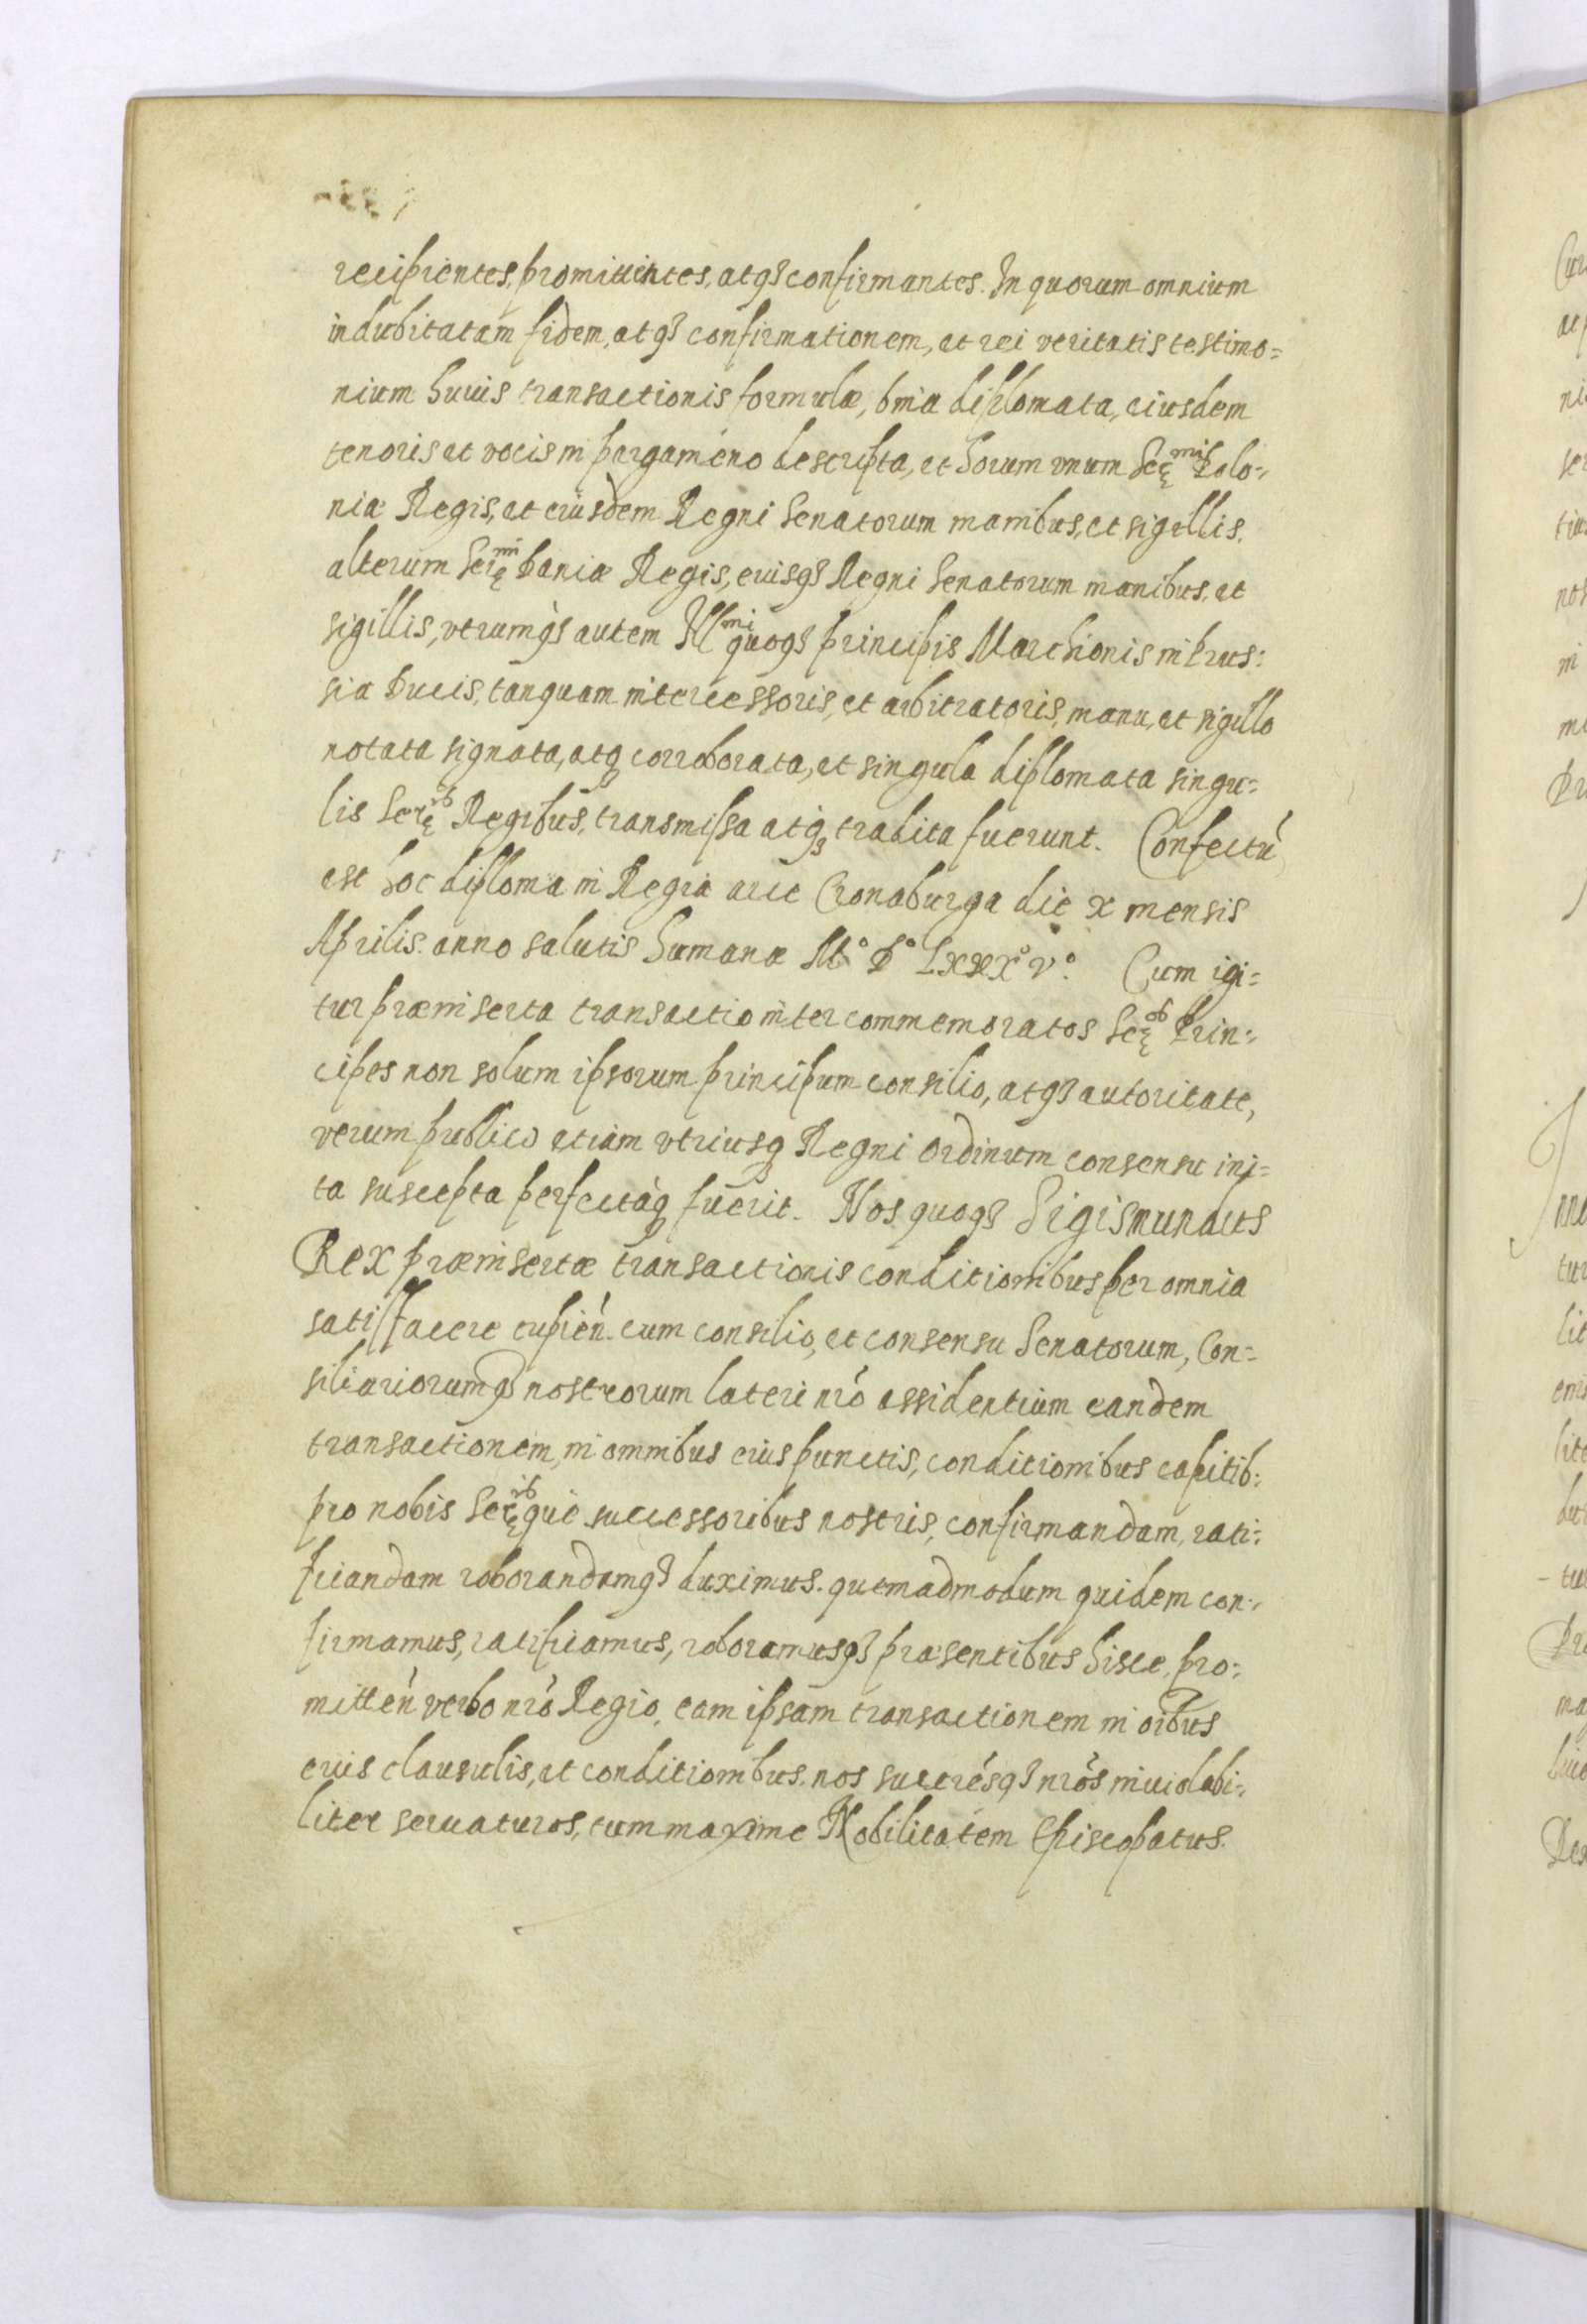 recipientes, promittentes, atq3 confirmantes. In quorum omnium
indubitatam fidem, atq3 confirmationem, et rei veritatis testimo=
nium huius transactionis formulæ, bina diplomata, eiusdem
tenoris et vocis in pargameno descripta, et horum unum Serᵐⁱ Polo=
niæ Regis, et eiusdem Regni Senatorum manibus, et sigillis.
alterum Serᵐⁱ Daniæ Regis, eiusq3 Regni Senatorum manibus, et
sigillis, vtrumq3 autem Illᵐⁱ quoq3 principis Marchionis in Prus=
sia Ducis, tanquam intercessoris, et arbitratoris, manu, et sigillo
notata signata, atq3 corroborata, et singula diplomata singu=
lis Serⁱᵇ Regibus, transmissa atq3 tradita fuerunt. Confectū
est hoc diploma in Regia arce Cronaburga die x mensis
Aprilis. anno salutis humanæ M° D° Lxxx° v°. Cum igi=
tur præinserta transactio inter commemoratos Serᵒˢ Prin=
cipes non solum ipsorum principum consilio, atq3 autoritate,
verum publico etiam vtriusq3 Regni Ordinum consensu ini=
ta suscepta perfectaq3 fuerit. Nos quoq3 Sigismundus
Rex præinsertæ transactionis conditionibus per omnia
satisfacere cupień. cum consilio, et consensu Senatorum, Con=
siliariorumq3 nostrorum lateri nrō assidentium eandem
transactionem, in omnibus eius punctis, conditionibus capitib:
pro nobis Serⁱᵇque successoribus nostris, confirmandam, rati=
ficandam roborandamq3 duximus. quemadmodum quidem con=
firmamus, ratificamus, roboramusq3 præsentibus hisce, pro=
mitteń verbo nrō Regio, eam ipsam transactionem in oībus
eius clausulis, et conditionibus. nos succrésq3 nrōs inviolabi=
liter seruaturos, tum maxime Nobilitatem Episcopatus.